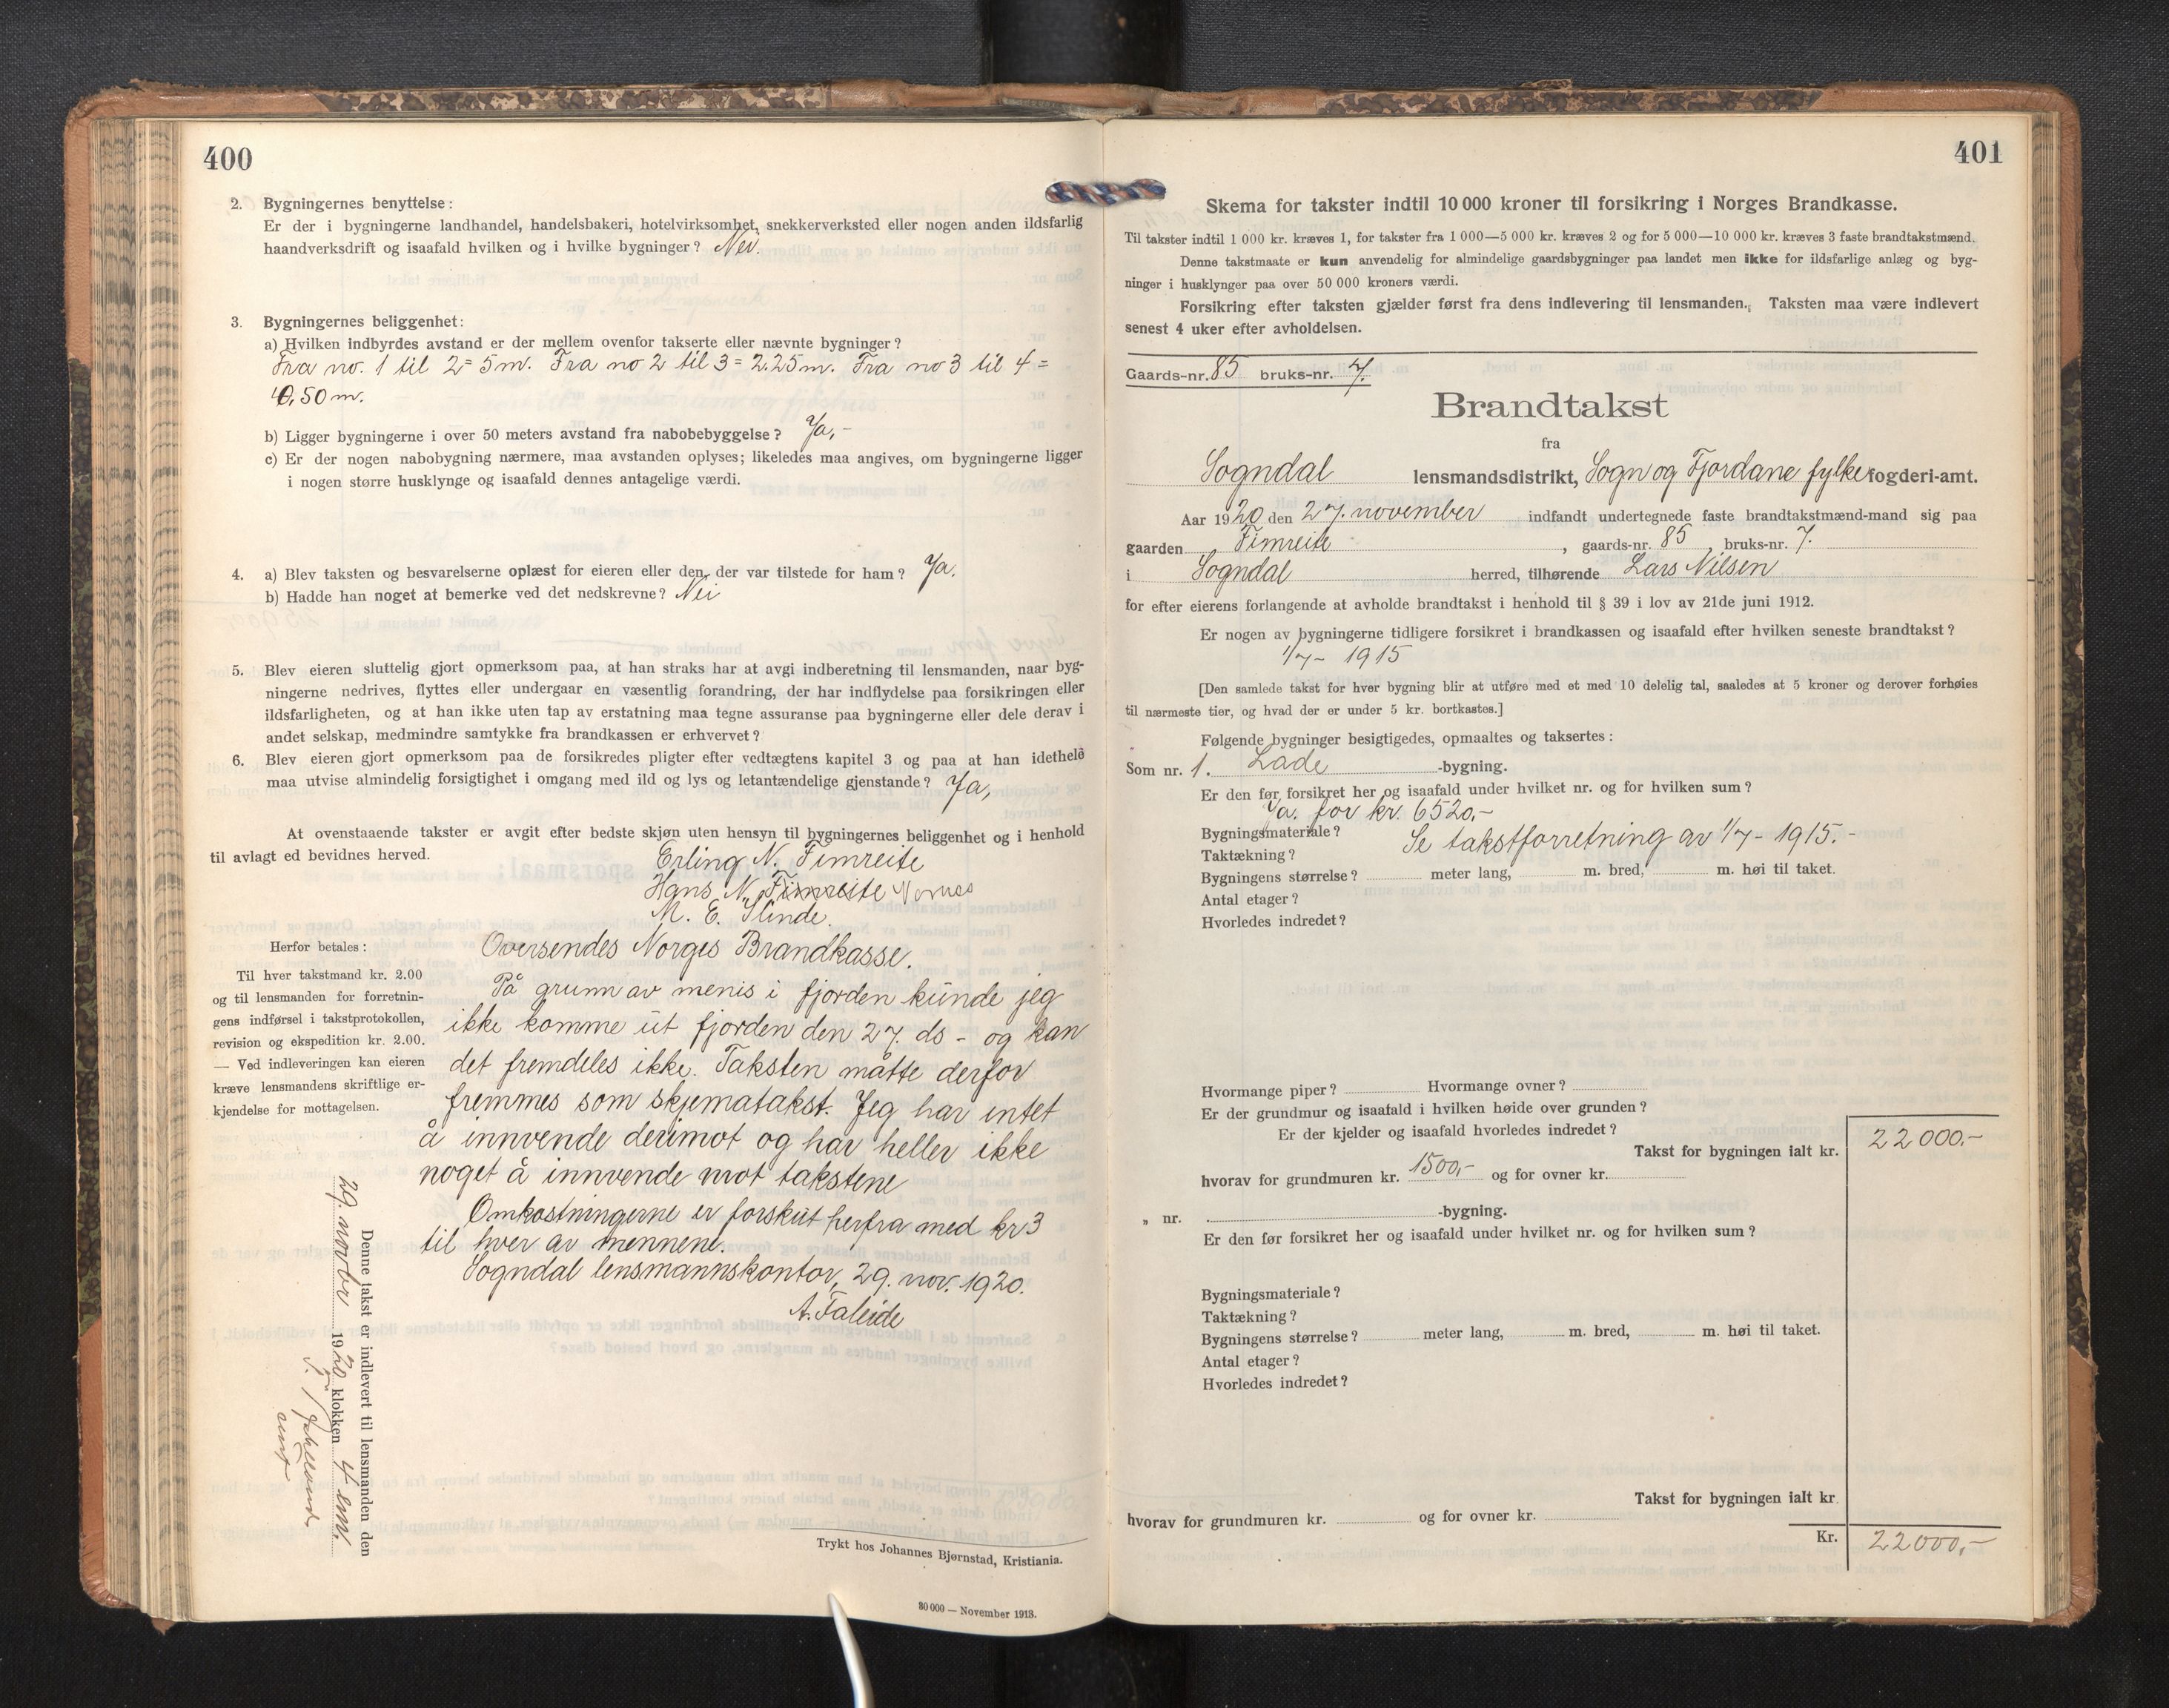 400
2. Bygningernes benyttelse:
Er der i bygningerne landhandel, handelsbakeri, hotelvirksomhet, snekkerverksted eller nogen anden ildsfarlig
haandverksdrift og isaafald hvilken og i hvilke bygninger? Nei.
3. Bygningernes beliggenhet:
a) Hvilken indbyrdes avstand er der mellem ovenfor takserte eller nævnte bygninger?
Fra no. 1 til 2 = 5 m. Fra no 2 til 3 = 2.25 m. Fra no 3 til 4 =
0,50 m.
b) Ligger bygningerne i over 50 meters avstand fra nabobebyggelse? Ja,-
c) Er der nogen nabobygning nærmere, maa avstanden oplyses; likeledes maa angives, om bygningerne ligger
i nogen større husklynge og isaafald dennes antagelige værdi.
4. a) Blev taksten og besvarelserne oplæst for eieren eller den, der var tilstede for ham? Ja.
b) Hadde han noget at bemerke ved det nedskrevne? Nei
5. Blev eieren sluttelig gjort opmerksom paa, at han straks har at avgi indberetning til lensmanden, naar byg-
ningerne nedrives, flyttes eller undergaar en væsentlig forandring, der har indflydelse paa forsikringen eller
ildsfarligheten, og at han ikke uten tap av erstatning maa tegne assuranse paa bygningerne eller dele derav i
andet selskap, medmindre samtykke fra brandkassen er erhvervet?
6. Blev eieren gjort opmerksom paa de forsikredes pligter efter vedtægtens kapitel 3 og paa at han idethele
maa utvise almindelig forsigtighet i omgang med ild og lys og letantændelige gjenstande? Ja,
At ovenstaaende takster er avgit efter bedste skjøn uten hensyn til bygningernes beliggenhet og i henhold
til avlagt ed bevidnes herved.
Erling N. Fimreite
Hans N. Fimreite Nornes
M. E. Slinde.
Herfor betales:
Til hver takstmand kr. 2.00
og til lensmanden for forretnin-
gens indførsel i takstprotokollen,
revision og ekspedition kr. 2.00.
— Ved indleveringen kan eieren
kræve lensmandens skriftlige er-
kjendelse for mottagelsen.
Oversendes Norges Brandkasse.
På grunn av menis i fjorden kunde jeg
ikke komme ut fjorden den 27. ds - og kan
det fremdeles ikke. Taksten måtte derfor
fremmes som skjematakst. Jeg har intet
å innvende derimot og har heller ikke
noget å innvende mot takstene
Omkostningerne er forskut herfra med kr 3
til hver av mennene.
Sogndal lensmannskontor, 29. nov. 1920.
A. Faleide
Denne takst er indlevert til lensmanden den
29. novbr 1920 klokken 4 em.
Trykt hos Johannes Bjørnstad, Kristiania.
30 000 — November 1913.
401
Skema for takster indtil 10 000 kroner til forsikring i Norges Brandkasse.
Til takster indtil 1 000 kr. kræves 1, for takster fra 1 000—5 000 kr. kræves 2 og for 5 000—10 000 kr. kræves 3 faste brandtakstmænd.
Denne takstmaate er kun anvendelig for almindelige gaardsbygninger paa landet men ikke for ildsfarlige anlæg og byg-
ninger i husklynger paa over 50 000 kroners værdi.
Forsikring efter taksten gjælder først fra dens indlevering til lensmanden. Taksten maa være indlevert
senest 4 uker efter avholdelsen.
Gaards-nr. 85 bruks-nr. 7.
Brandtakst
fra
Sogndal lensmandsdistrikt, Sogn og Fjordane fylke fogderi-amt.
Aar 1920 den 27. november indfandt undertegnede faste brandtakstmænd-mand sig paa
gaarden Fimreite, gaards-nr. 85, bruks-nr. 7.
i Sogndal herred, tilhørende Lars Nilsen
for efter eierens forlangende at avholde brandtakst i henhold til § 39 i lov av 21de juni 1912.
Er nogen av bygningerne tidligere forsikret i brandkassen og isaafald efter hvilken seneste brandtakst?
1/7 - 1915
[Den samlede takst for hver bygning blir at utføre med et med 10 delelig tal, saaledes at 5 kroner og derover forhøies
til nærmeste tier, og hvad der er under 5 kr. bortkastes.]
Følgende bygninger besigtigedes, opmaaltes og taksertes:
Som nr. 1. Lade -bygning.
Er den før forsikret her og isaafald under hvilket nr. og for hvilken sum?
Ja. for kr. 6520,-
Bygningsmateriale? Se takstforretning av 1/7 - 1915.-
Taktækning?
Bygningens størrelse? meter lang, m. bred, m. høi til taket.
Antal etager?
Hvorledes indredet?
Hvormange piper? Hvormange ovner?
Er der grundmur og isaafald i hvilken høide over grunden?
Er der kjelder og isaafald hvorledes indredet?
Takst for bygningen ialt kr. 22000.-
hvorav for grundmuren kr. 1500,- og for ovner kr.
„ nr. -bygning.
Er den før forsikret her og isaafald under hvilket nr. og for hvilken sum?
Bygningsmateriale?
Taktækning?
Bygningens størrelse? meter lang, m. bred, m. høi til taket.
Antal etager?
Hvorledes indredet?
Takst for bygningen ialt kr.
hvorav for grundmuren kr. og for ovner kr.
Kr. 22000,-